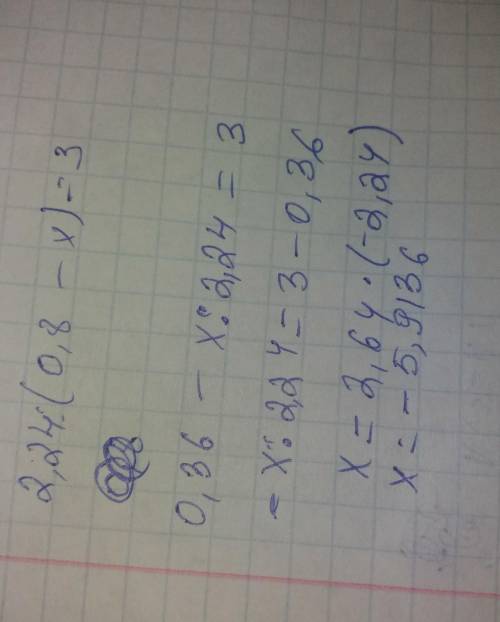 2,24:(0,8 - x) = 3
0,36 - x:2,24 = 3
- x:2,24 = 3 - 0,36
x = 2,64·(-2,24)
x = -5,9136